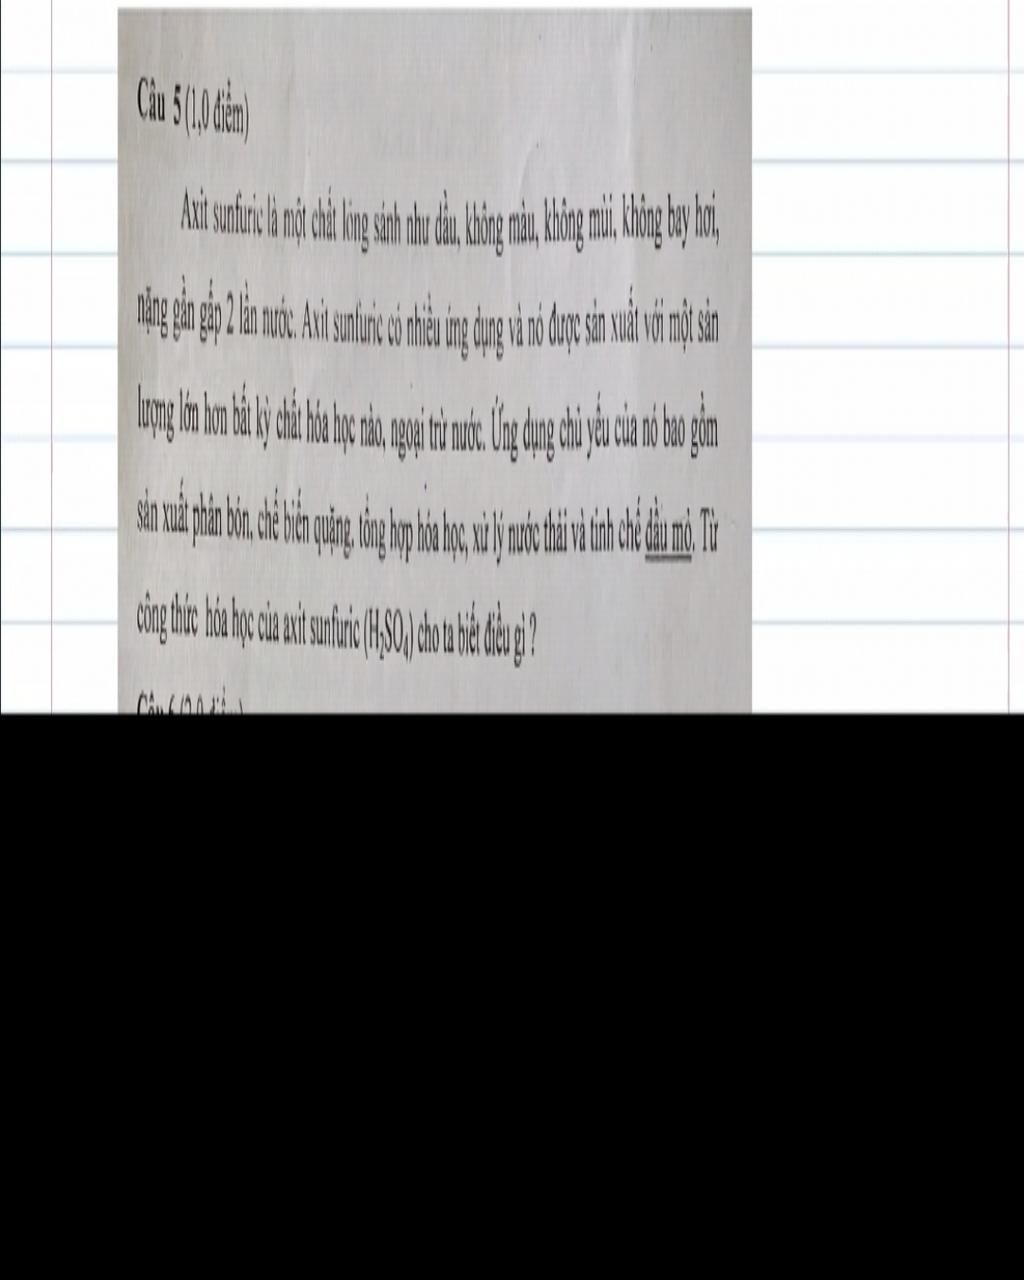 Câu 5 (1,0 điểm)
Axit sunfuric là một chất lỏng sánh như dầu, không màu, không mùi, không bay hơi,
nặng gần gấp 2 lần nước. Axit sunfuric có nhiều ứng dụng và nó được sản xuất với một sản
lượng lớn hơn bất kỳ chất hóa học nào, ngoại trừ nước. Ứng dụng chủ yếu của nó bao gồm
sản xuất phân bón, chế biến quặng, tổng hợp hóa học, xử lý nước thải và tinh chế dầu mỏ. Từ
công thức hóa học của axit sunfuric (H₂SO₄) cho ta biết điều gì ?
Câu 6 (2,0 điểm)